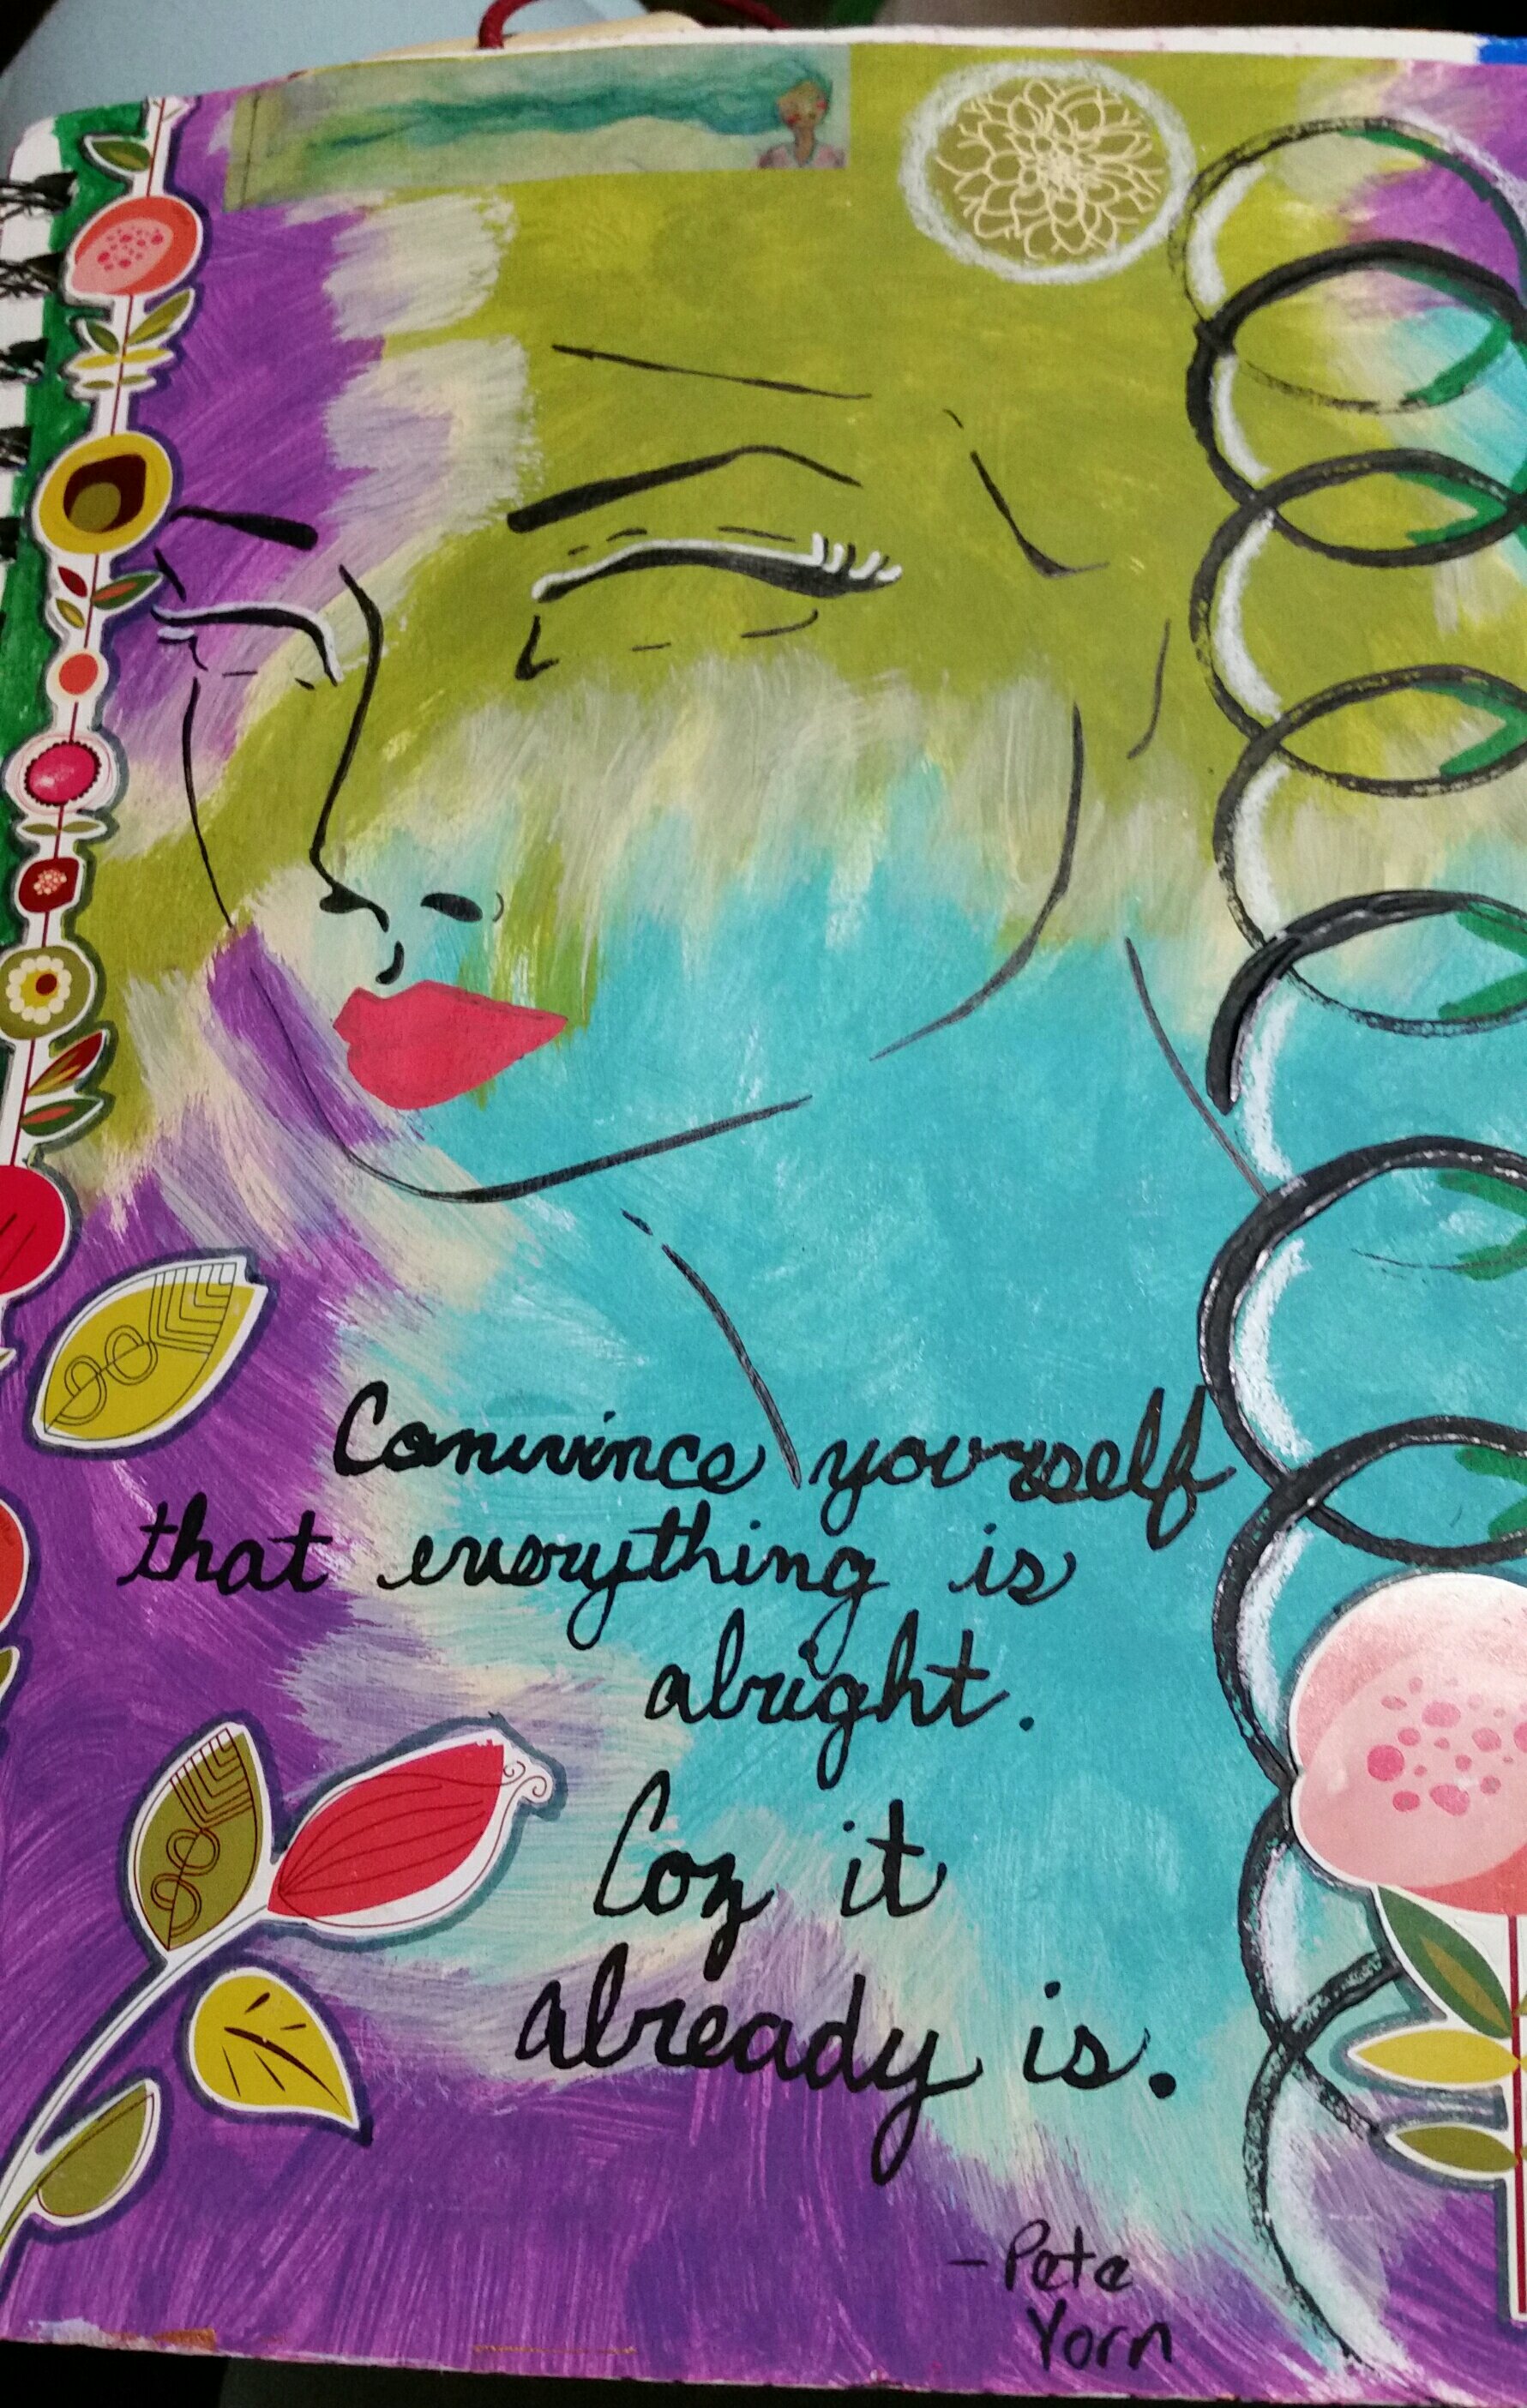 Convince yourself
that everything is
alright.
Coz it
already is.
- Pete
Yorn